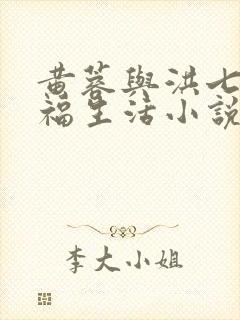 黄蓉與洪七
福生活小説
李大小姐